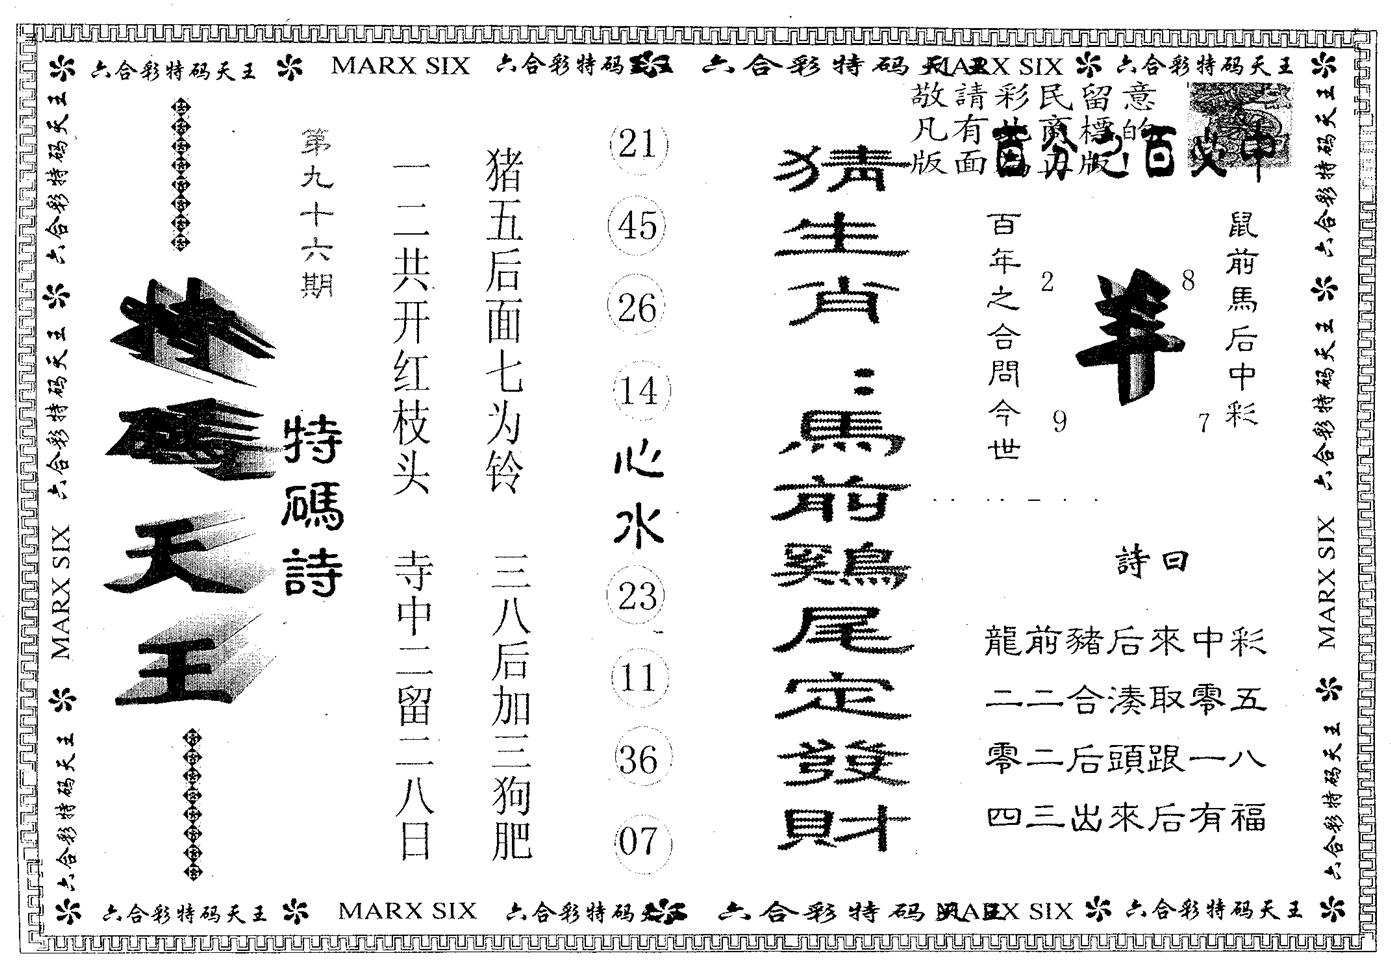 六合彩特码天王 MARX SIX 六合彩特码天王 六合彩特码天王 MARX SIX 六合彩特码天王
六合彩特码天王
六合彩特码天王
MARX SIX
六合彩特码天王
特碼天王
第九十六期
特碼詩
一二共开红枝头 寺中二留二八日
猪五后面七为铃 三八后加三狗肥
21
45
26
14
心水
23
11
36
07
猜生肖：馬前鷄尾定發財
敬請彩民留意
凡有 商標的
版面 正版!
百分之百必中
百年之合問今世
2
8
羊
9
7
鼠前馬后中彩
詩曰
龍前豬后來中彩
二二合湊取零五
零二后頭跟一八
四三出來后有福
六合彩特码天王
六合彩特码天王
MARX SIX
六合彩特码天王
六合彩特码天王 MARX SIX 六合彩特码天王 六合彩特码天王 MARX SIX 六合彩特码天王